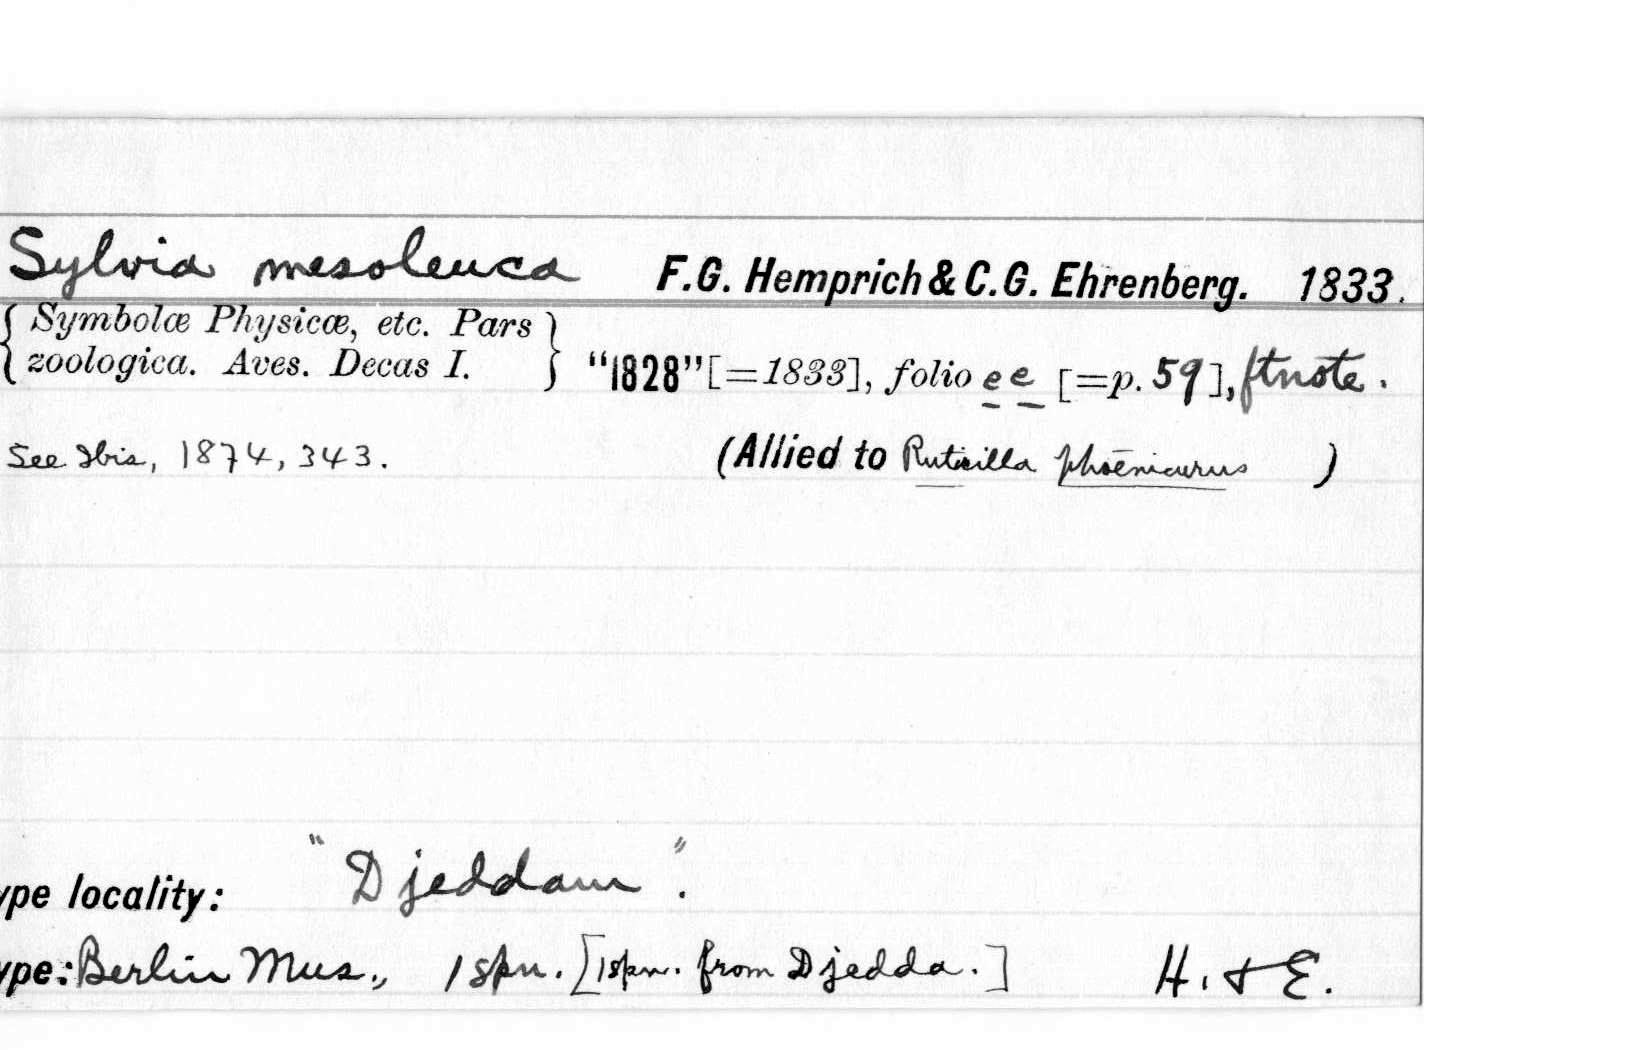 Sylvia mesoleuca F.G. Hemprich & C.G. Ehrenberg. 1833.
{ Symbolæ Physicæ, etc. Pars
zoologica. Aves. Decas I. } "1828" [=1833], folio ee [=p. 59], ftnote.
See Ibis, 1874, 343. (Allied to Ruticilla phoenicurus )
ype locality: "Djeddam".
ype: Berlin Mus., 1 spn. [1 spn. from Djedda.] H. & E.